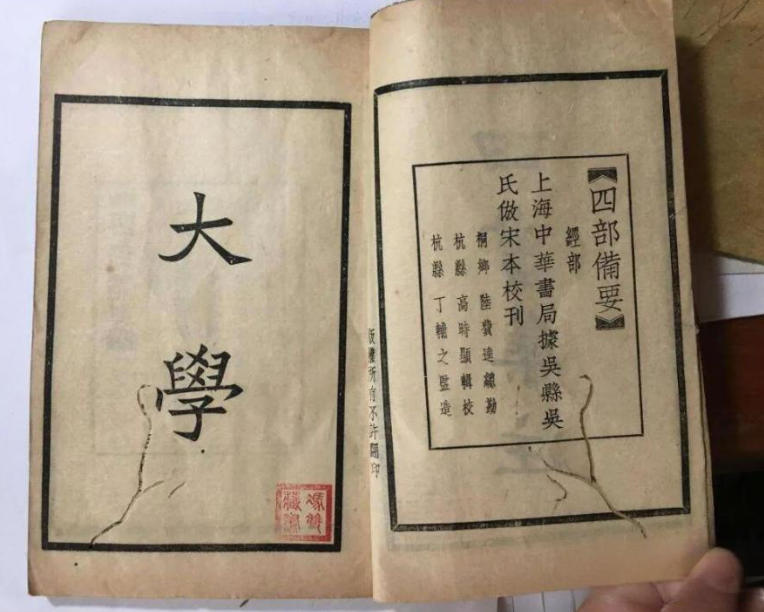 四部備要
經部
上海中華書局據吳縣吳
氏倣宋本校刊
桐鄉 陸費逵總勘
杭縣 高時顯輯校
杭縣 丁輔之監造
版權所有不許翻印
大學